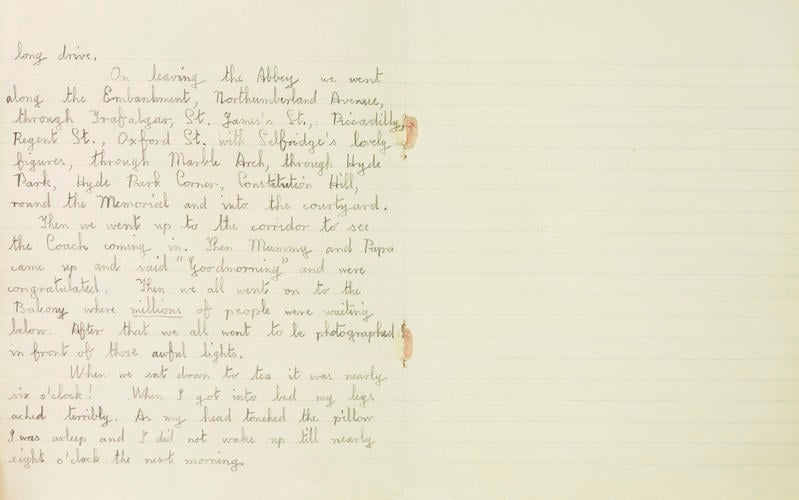 long drive.
On leaving the Abbey we went
along the Embankment, Northumberland Avenue,
through Trafalgar, St. James's St., Piccadilly,
Regent St., Oxford St. with Selfridge's lovely
figures, through Marble Arch, through Hyde
Park, Hyde Park Corner, Constitution Hill,
round the Memorial and into the courtyard.
Then we went up to the corridor to see
the Coach coming in. Then Mummy and Papa
came up and said "Goodmorning" and were
congratulated. Then we all went on to the
Balcony where millions of people were waiting
below. After that we all went to be photographed
in front of those awful lights.
When we sat down to tea it was nearly
six o'clock! When I got into bed my legs
ached terribly. As my head touched the pillow
I was asleep and I did not wake up till nearly
eight o'clock the next morning.